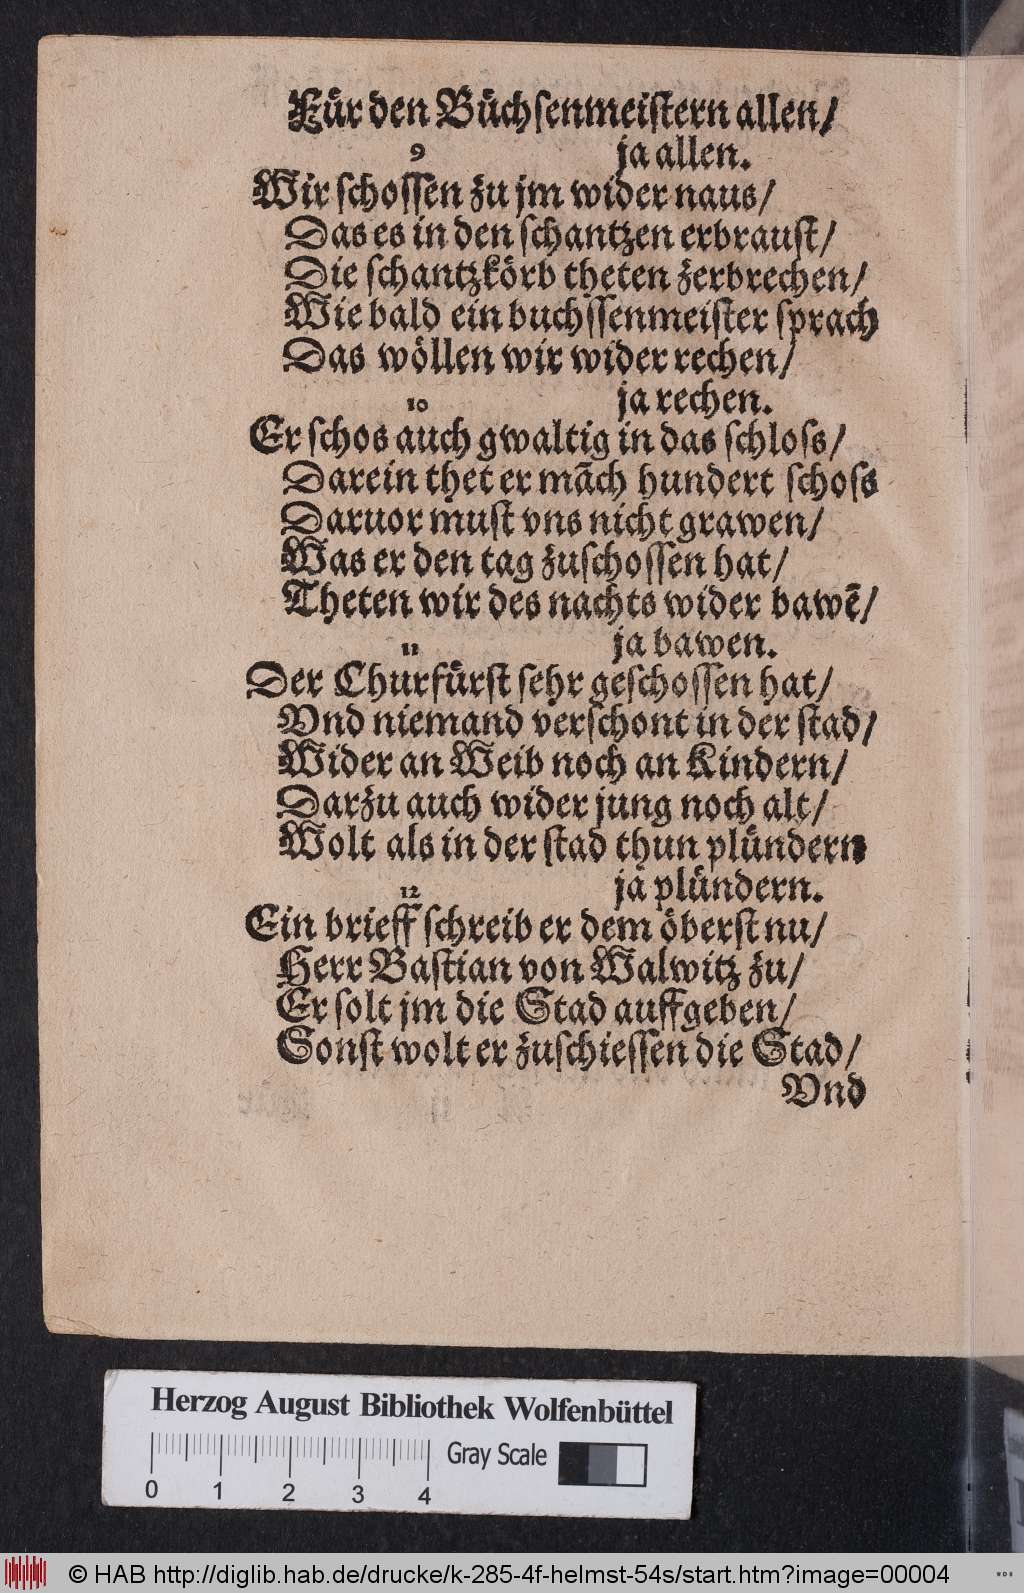 Für den Büchsenmeistern allen/
9 ja allen.
Wir schossen zu jm wider naus/
Das es in den schantzen erbraust/
Die schantzkörb theten zerbrechen/
Wie bald ein buchssenmeister sprach
Das wöllen wir wider rechen/
10 ja rechen.
Er schos auch gwaltig in das schloss/
Darein thet er mãch hundert schoss
Daruor must vns nicht grawen/
Was er den tag zuschossen hat/
Theten wir des nachts wider bawẽ/
11 ja bawen.
Der Churfürst sehr geschossen hat/
Vnd niemand verschont in der stad/
Wider an Weib noch an Kindern/
Darzu auch wider jung noch alt/
Wolt als in der stad thun plündern
12 ja plündern.
Ein brieff schreib er dem öberst nu/
Herr Bastian von Walwitz zu/
Er solt jm die Stad auffgeben/
Sonst wolt er zuschiessen die Stad/
Vnd
Herzog August Bibliothek Wolfenbüttel
Gray Scale
0 1 2 3 4
© HAB http://diglib.hab.de/drucke/k-285-4f-helmst-54s/start.htm?image=00004